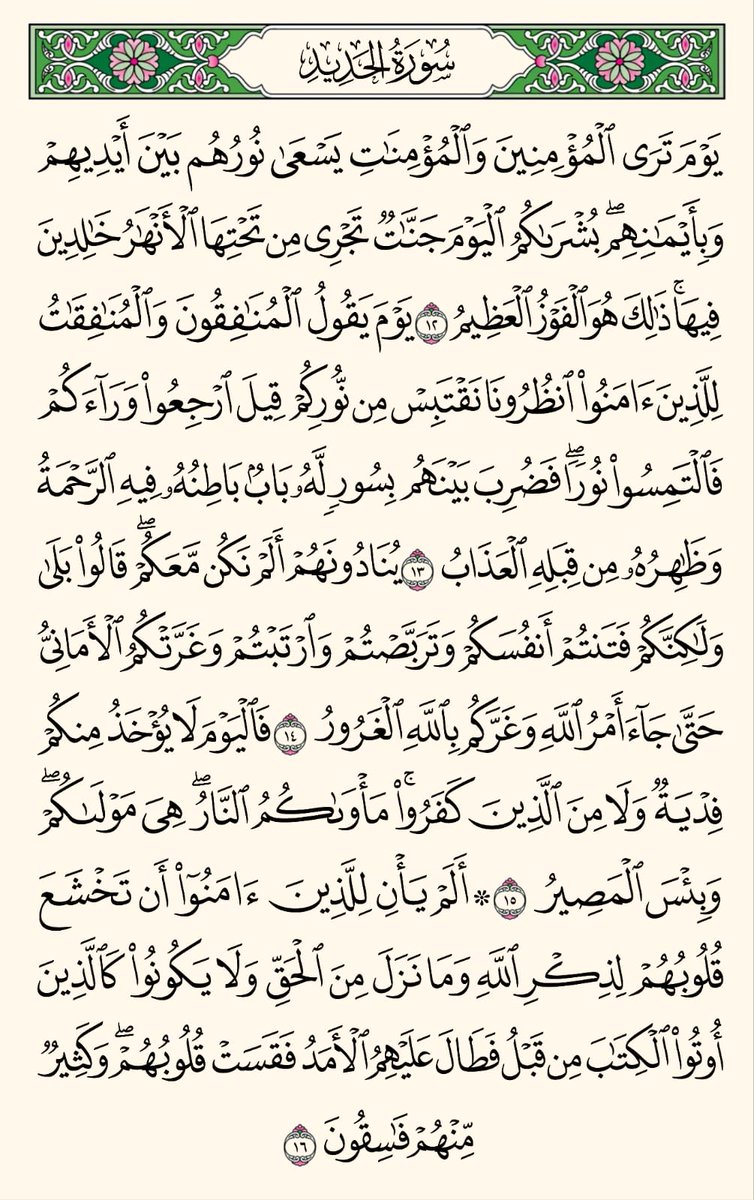 سُورَةُ الحَدِيدِ
يَوۡمَ تَرَى ٱلۡمُؤۡمِنِينَ وَٱلۡمُؤۡمِنَٰتِ يَسۡعَىٰ نُورُهُم بَيۡنَ أَيۡدِيهِمۡ
وَبِأَيۡمَٰنِهِمۖ بُشۡرَىٰكُمُ ٱلۡيَوۡمَ جَنَّٰتٞ تَجۡرِي مِن تَحۡتِهَا ٱلۡأَنۡهَٰرُ خَٰلِدِينَ
فِيهَاۚ ذَٰلِكَ هُوَ ٱلۡفَوۡزُ ٱلۡعَظِيمُ ١٢ يَوۡمَ يَقُولُ ٱلۡمُنَٰفِقُونَ وَٱلۡمُنَٰفِقَٰتُ
لِلَّذِينَ ءَامَنُواْ ٱنظُرُونَا نَقۡتَبِسۡ مِن نُّورِكُمۡ قِيلَ ٱرۡجِعُواْ وَرَآءَكُمۡ
فَٱلۡتَمِسُواْ نُورٗاۖ فَضُرِبَ بَيۡنَهُم بِسُورٖ لَّهُۥ بَابُۢ بَاطِنُهُۥ فِيهِ ٱلرَّحۡمَةُ
وَظَٰهِرُهُۥ مِن قِبَلِهِ ٱلۡعَذَابُ ١٣ يُنَادُونَهُمۡ أَلَمۡ نَكُن مَّعَكُمۡۖ قَالُواْ بَلَىٰ
وَلَٰكِنَّكُمۡ فَتَنتُمۡ أَنفُسَكُمۡ وَتَرَبَّصۡتُمۡ وَٱرۡتَبۡتُمۡ وَغَرَّتۡكُمُ ٱلۡأَمَانِيُّ
حَتَّىٰ جَآءَ أَمۡرُ ٱللَّهِ وَغَرَّكُم بِٱللَّهِ ٱلۡغَرُورُ ١٤ فَٱلۡيَوۡمَ لَا يُؤۡخَذُ مِنكُمۡ
فِدۡيَةٞ وَلَا مِنَ ٱلَّذِينَ كَفَرُواْۚ مَأۡوَىٰكُمُ ٱلنَّارُۖ هِيَ مَوۡلَىٰكُمۡۖ
وَبِئۡسَ ٱلۡمَصِيرُ ١٥ ۞ أَلَمۡ يَأۡنِ لِلَّذِينَ ءَامَنُوٓاْ أَن تَخۡشَعَ
قُلُوبُهُمۡ لِذِكۡرِ ٱللَّهِ وَمَا نَزَلَ مِنَ ٱلۡحَقِّ وَلَا يَكُونُواْ كَٱلَّذِينَ
أُوتُواْ ٱلۡكِتَٰبَ مِن قَبۡلُ فَطَالَ عَلَيۡهِمُ ٱلۡأَمَدُ فَقَسَتۡ قُلُوبُهُمۡۖ وَكَثِيرٞ
مِّنۡهُمۡ فَٰسِقُونَ ١٦